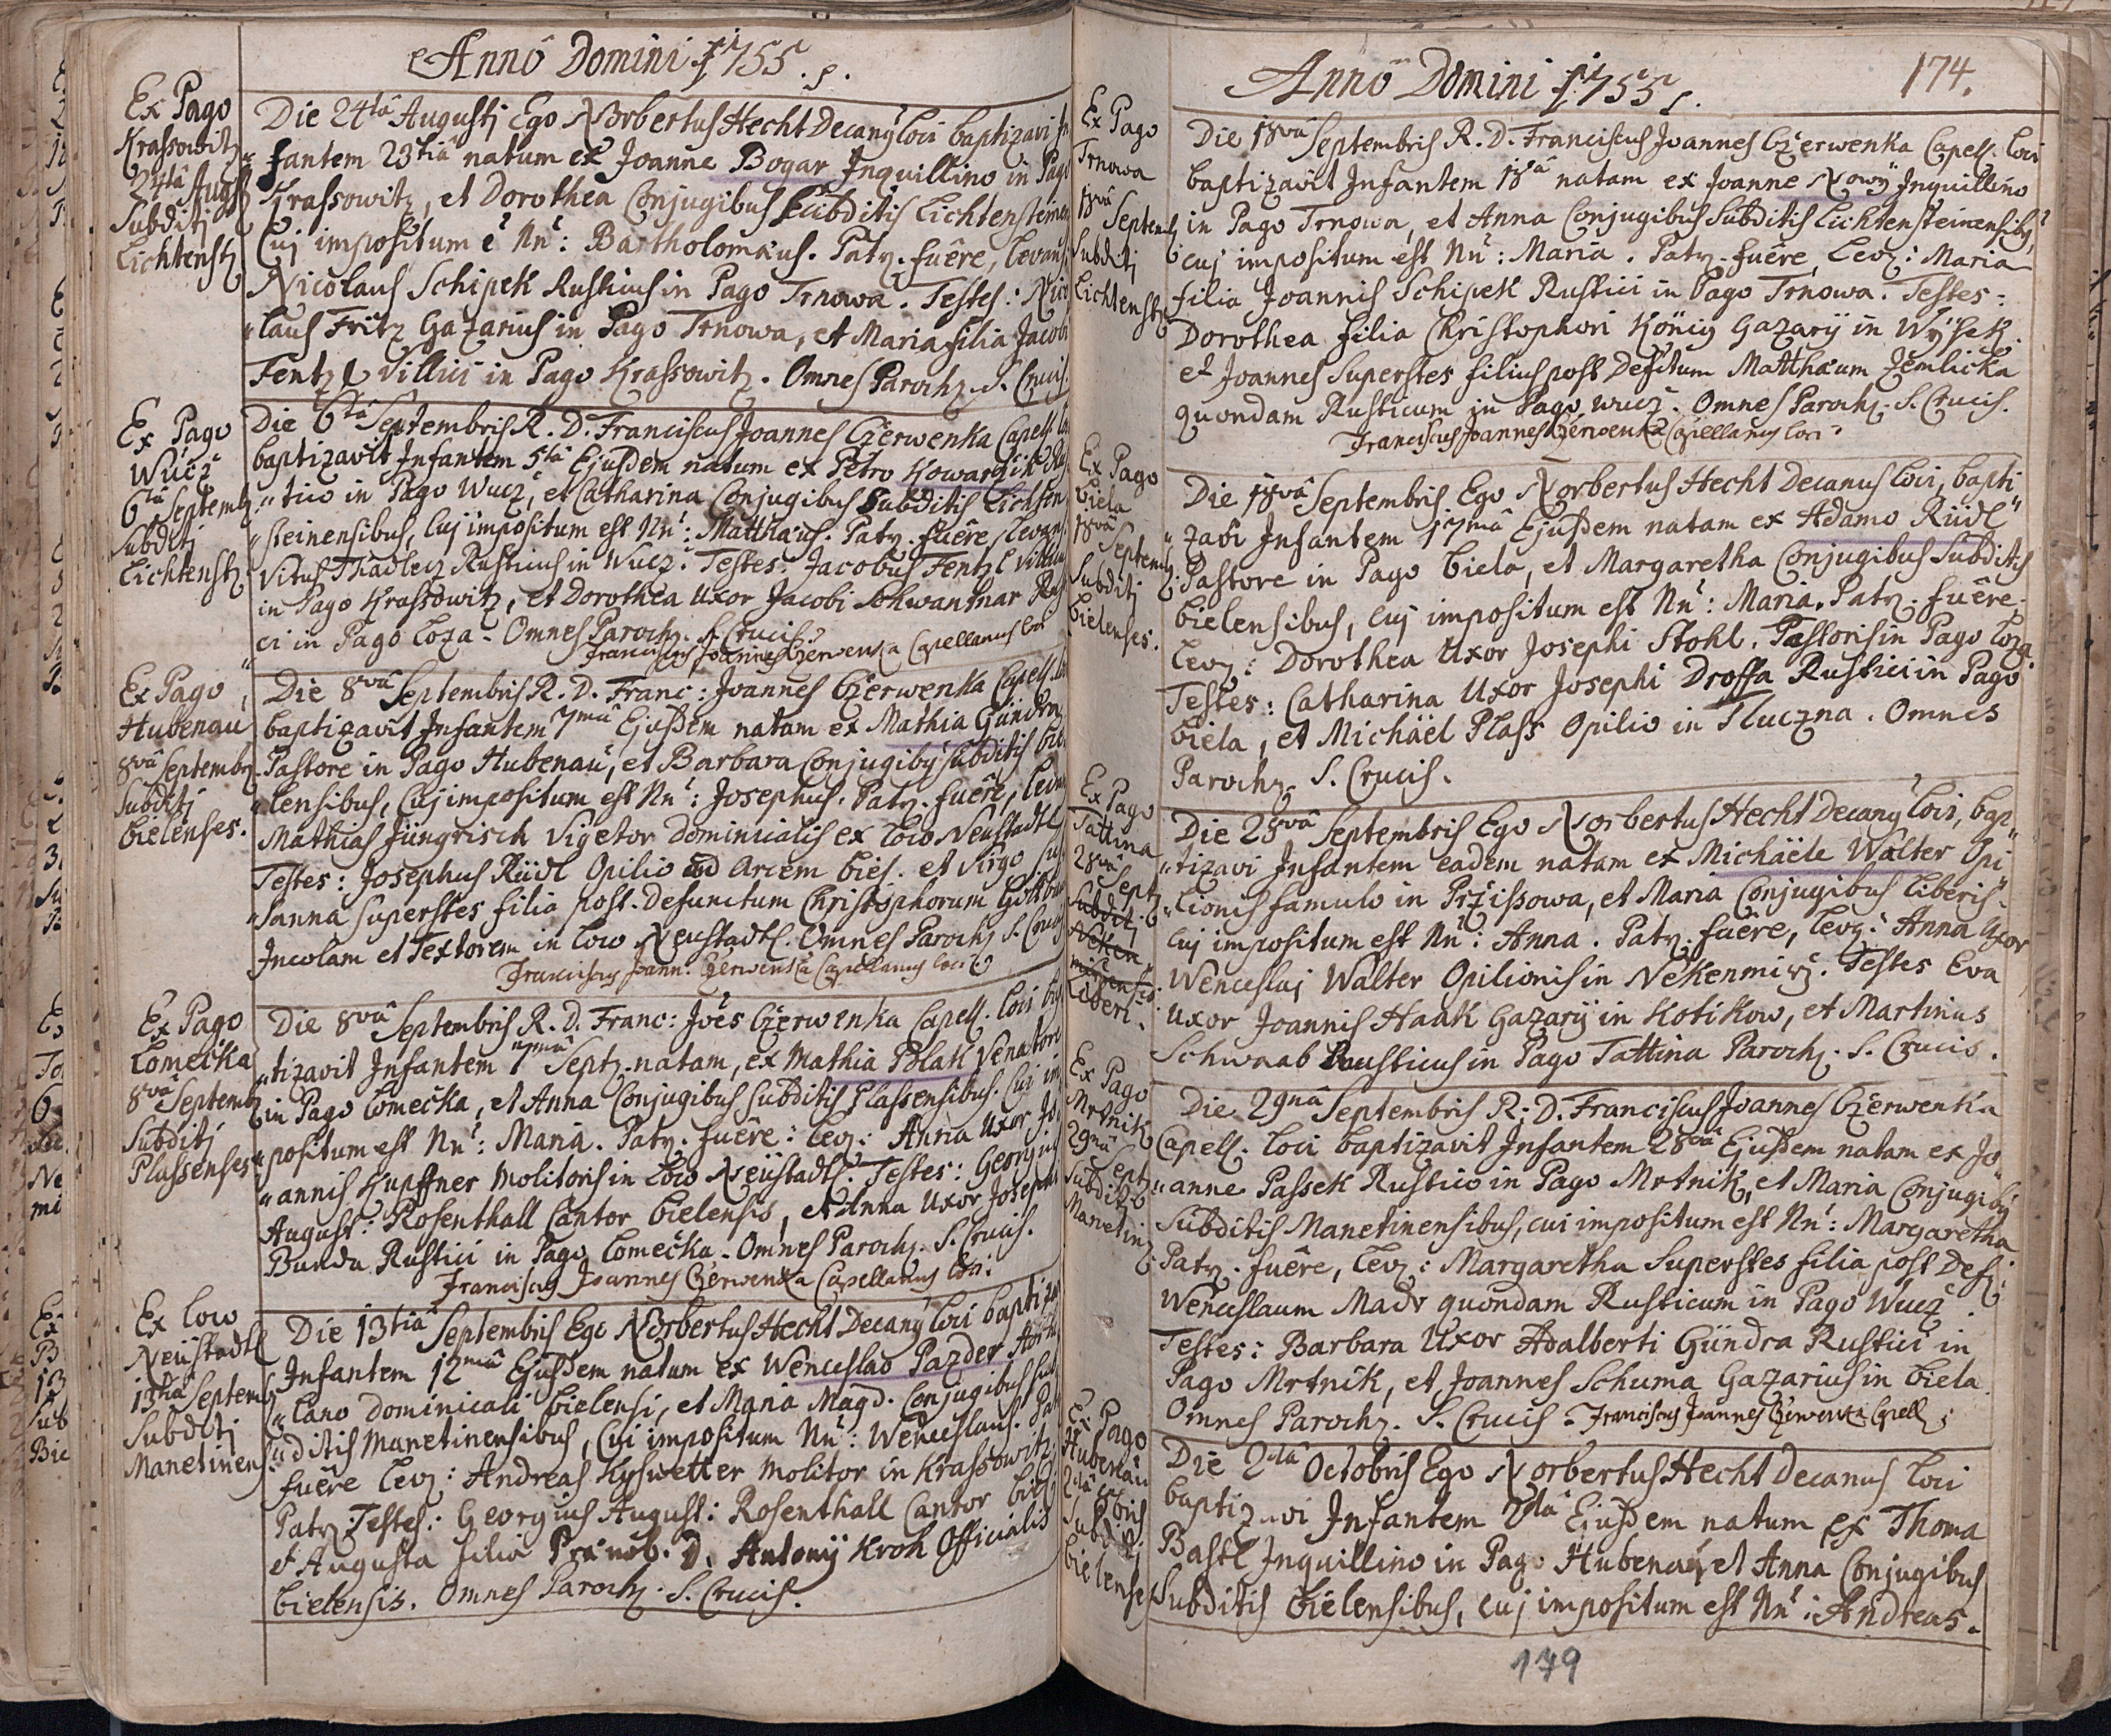 Anno Domini 1755.
Ex Pago
Krassowitz
24tâ Augs
Subditj
Lichtenstz
Die 24tâ Augustj Ego Norbertus Hecht Decany loci baptizavi In
fantem 23tiâ natum ex Joanne Bogar Inquillino in Pago
Krassowitz, et Dorothea Conjugibus Subditis Lichtensteinen
Cuj impositum ẽ Nñ: Bartholomæus. Patr. fuêre, levans
Nicolaus Schipek Rusticus in Pago Trnowa. Testes: Nico
laus Fritz Gazarius in Pago Trnowa, et Maria filia Jacobi
Fentzl Villici in Pago Krassowitz. Omnes Paroch. S. Crucis.
Ex Pago
Wucž
6tâ Septemb
Subditj
Lichtenstz
Die 6tâ Septembris R. D. Franciscus Joannes Czerwenka Capell. lo
baptizavit Infantem 5tâ Ejusdem natum ex Petro Kowarzik Rus
"tico in Pago Wucž, et Catharina Conjugibus Subditis Lichten
"steinensibus, Cuj impositum est Nñ: Matthæus. Patr. fuêre, levans
Vitus Thadlecz Rusticus in Wucž. Testes: Jacobus Fentzl Villicus
in Pago Krassowitz, et Dorothea Uxor Jacobi Schwantnar Rus
ci in Pago Loza. Omnes Paroch. S. Crucis.
Franciscus Joannes Czerwenka Capellanus loci
Ex Pago
Hubenau
8vâ Septembr
Subditj
Bielenses.
Die 8vâ Septembris R. D. Franc: Joannes Czerwenka Capell. lo
baptizavit Infantem 7mâ Ejusdem natam ex Mathia Gündra
Pastore in Pago Hubenau, et Barbara Conjugiby Subditis Bie
"lensibus, Cuj impositum est Nñ: Josephus. Patr. fuêre, levans
Mathias Jüngrisch Vigetor Dominicalis ex loco Neustadtl
Testes: Josephus Riidl Opilio ad Arcem Biel. et Virgo Su
"sanna Superstes filia post Defunctum Christophorum
Incolam et Textorem in loco Neustadtl. Omnes Paroch S. Crucis
Franciscus Joann: Czerwenka Capellanus loci
Ex Pago
Lomečka
8vâ Septemb
Subditj
Plassenses
Die 8vâ Septembris R. D. Franc: Joẽs Czerwenka Capell. loci bap
"tizavit Infantem 7mâ Septz. natam, ex Mathia Polak Venatore
in Pago Lomečka, et Anna Conjugibus Subditis Plassensibus. Cui im
"positum est Nñ: Maria. Patr. fuêre: Levz: Anna Uxor Jo
"annis Kupffner Molitoris in loco Neüstadtl. Testes: Georgius
August: Rosenthall Cantor Bielensis, et Anna Uxor Josephi
Bunda Rustici in Pago Lomečka. Omnes Paroch. S. Crucis.
Franciscus Joannes Czerwenka Capellanus loci
Ex loco
Neüstadtl
13tiâ Septemb
Subditj
Manetinen
Die 13tiâ Septembris Ego Norbertus Hecht Decany loci baptiza
Infantem 12mâ Ejusdem natum ex Wenceslao Pazder
"lano Dominicali Bielensi, et Maria Magd. Conjugibus Sub
"ditis Manetinensibus, Cui impositum Nñ: Wenceslaus. Patr
fuêre Levz: Andreas Kysswetter Molitor in Krassowitz.
Patr Testes: Georgius August: Rosenthall Cantor Biel.
et Augusta filia Prænob. D. Antonij Kroh Officialis
Bielensis. Omnes Paroch. S. Crucis.
Anno Domini 1755.
174.
Ex Pago
Trnowa
18vâ
Septemb
Subditj
Lichtenstz
Die 18vâ Septembris R. D. Franciscus Joannes Czerwenka Capell. loci
baptizavit Infantem 18â natam ex Joanne Nowy Inquillino
in Pago Trnowa, et Anna Conjugibus Subditis Lichtensteinensiby,
cuj impositum est Nñ: Maria. Patr. fuêre, Levz: Maria
filia Joannis Schipek Rustici in Pago Trnowa. Testes:
Dorothea filia Christophori König Gazarij in Wyssek.
et Joannes Superstes filius post Defctum Matthæum Zemlicka
quondam Rusticum in Pago Wucž. Omnes Paroch. S. Crucis.
Franciscus Joannes Czerwenka Capellanus loci
Ex Pago
Biela
18vâ
Septemb
Subditj
Bielenses.
Die 18vâ Septembris Ego Norbertus Hecht Decanus loci, bapti
"zavi Infantem 17mâ Ejusdem natam ex Adamo Riidl
Pastore in Pago Biela, et Margaretha Conjugibus Subditis
Bielensibus, Cuj impositum est Nñ: Maria. Patr. fuêre.
Levz: Dorothea Uxor Josephi Stohl. Pastoris in Pago Loza
Testes: Catharina Uxor Josephi Droffa Rustici in Pago
Biela, et Michäel Plass Opilio in Tluczna. Omnes
Paroch. S. Crucis.
Ex Pago
Tattina
28vâ
Septz
Subditj
Neken
mirensis
Liberi.
Die 28vâ Septembris Ego Norbertus Hecht Decany loci, bap
"tizavi Infantem eadem natam ex Michäele Walter Opi
"lionis famulo in Pržissowa, et Maria Conjugibus Liberis.
Cuj impositum est Nñ: Anna. Patr. fuêre, Levz: Anna Uxor
Wenceslaj Walter Opilionis in Nekenmirž. Testes Eva
Uxor Joannis Haak Gazarij in Kotikow, et Martinus
Schwaab Rusticus in Pago Tattina Paroch. S. Crucis.
Ex Pago
Mrtnik
29nâ
Septz
Subditj
Manetin
Die 29nâ Septembris R: D. Franciscus Joannes Czerwenka
Capell. loci baptizavit Infantem 28vâ Ejusdem natam ex Jo
"anne Passek Rustico in Pago Mrtnik, et Maria Conjugiby
Subditis Manetinensibus, cui impositum est Nñ: Margaretha
Patr. fuêre, Levz: Margaretha Superstes filia post Defz:
Wenceslaum Madr quondam Rusticum in Pago Wucž.
Testes: Barbara Uxor Adalberti Gündra Rustici in
Pago Mrtnik, et Joannes Schuma Gazarius in Biela.
Omnes Paroch. S. Crucis. Franciscus Joannes Czerwenka Capell.
Ex Pago
Hubenau
2dâ
8bris
Subditj
Bielenses
Die 2dâ Octobris Ego Norbertus Hecht Decanus loci
baptizavi Infantem 2dâ Ejusdem natum ex Thoma
Bastl Inquillino in Pago Hubenau, et Anna Conjugibus
Subditis Bielensibus, cuj impositum est Nñ: Andreas.
179